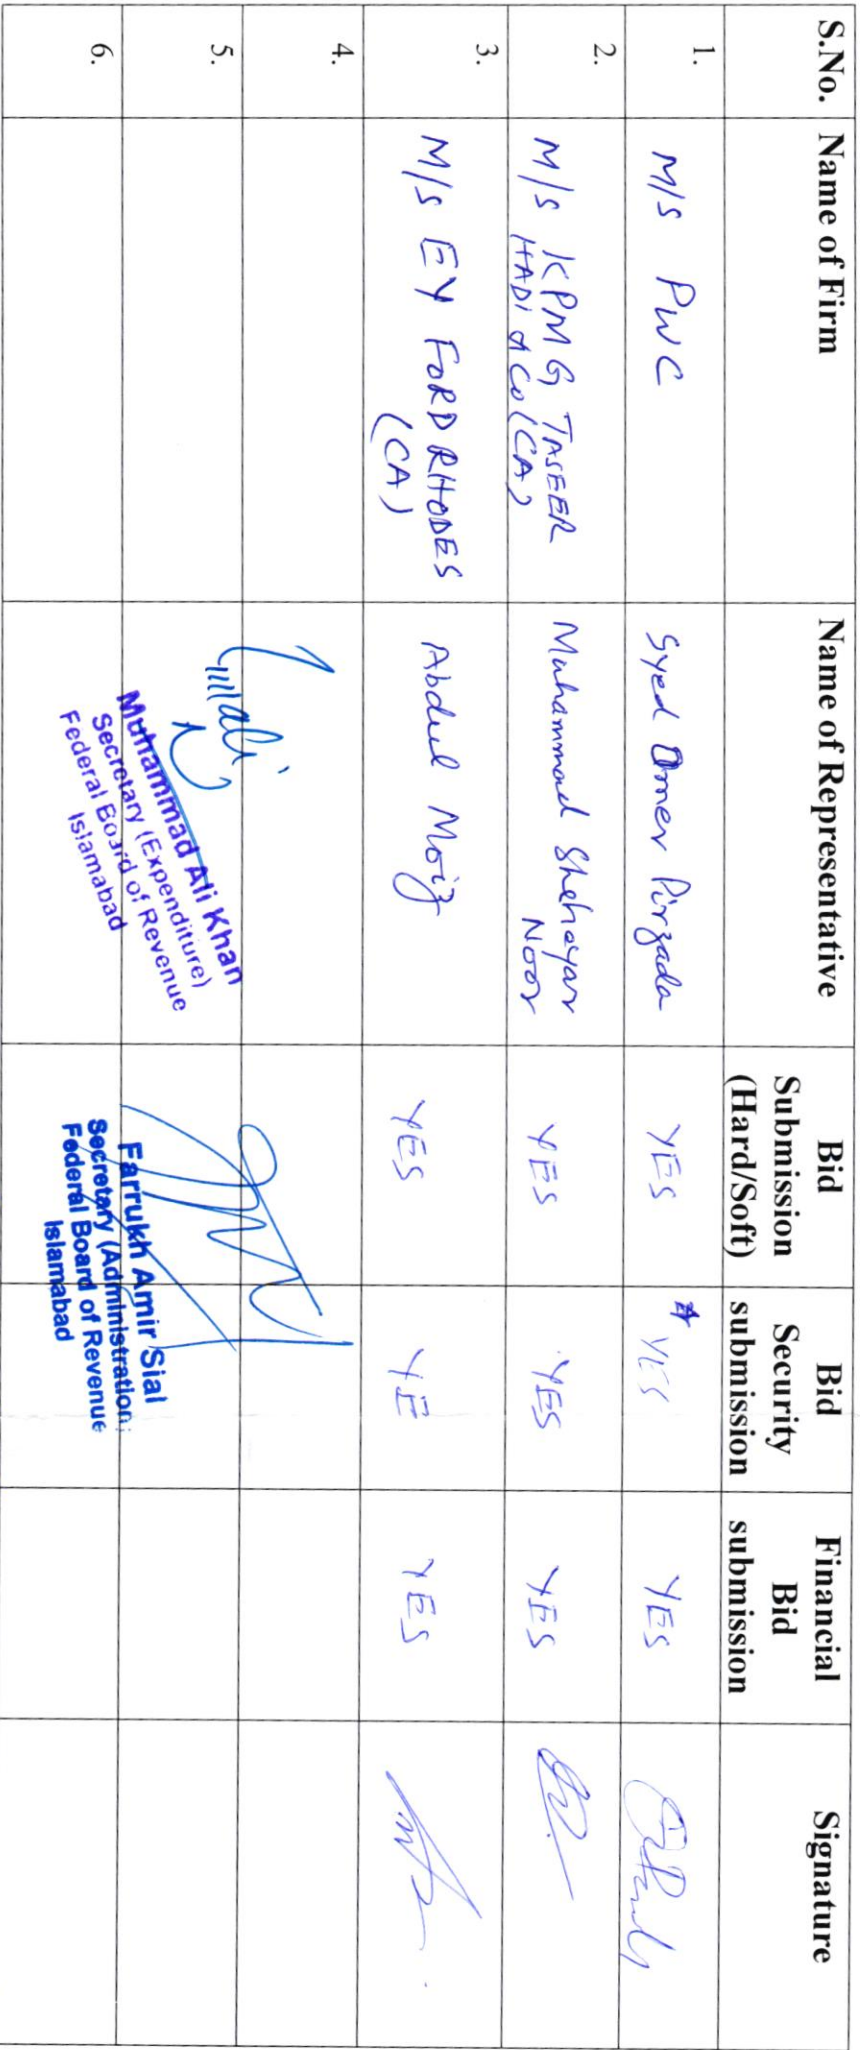 S.No. Name of Firm Name of Representative Bid Submission (Hard/Soft) Bid Security submission Financial Bid submission Signature
1. M/S PWC Syed Omer Pirzada YES * YES YES
2. M/S KPMG TASEER Muhammad Shehayar YES YES YES
HADI & Co (CA) Noor
3. M/S EY FORD RHODES Abdul Moiz YES YE YES
(CA)
4.
5.
6.
Muhammad Ali Khan
Secretary (Expenditure)
Federal Board of Revenue
Islamabad
Farrukh Amir Sial
Secretary (Administration)
Federal Board of Revenue
Islamabad